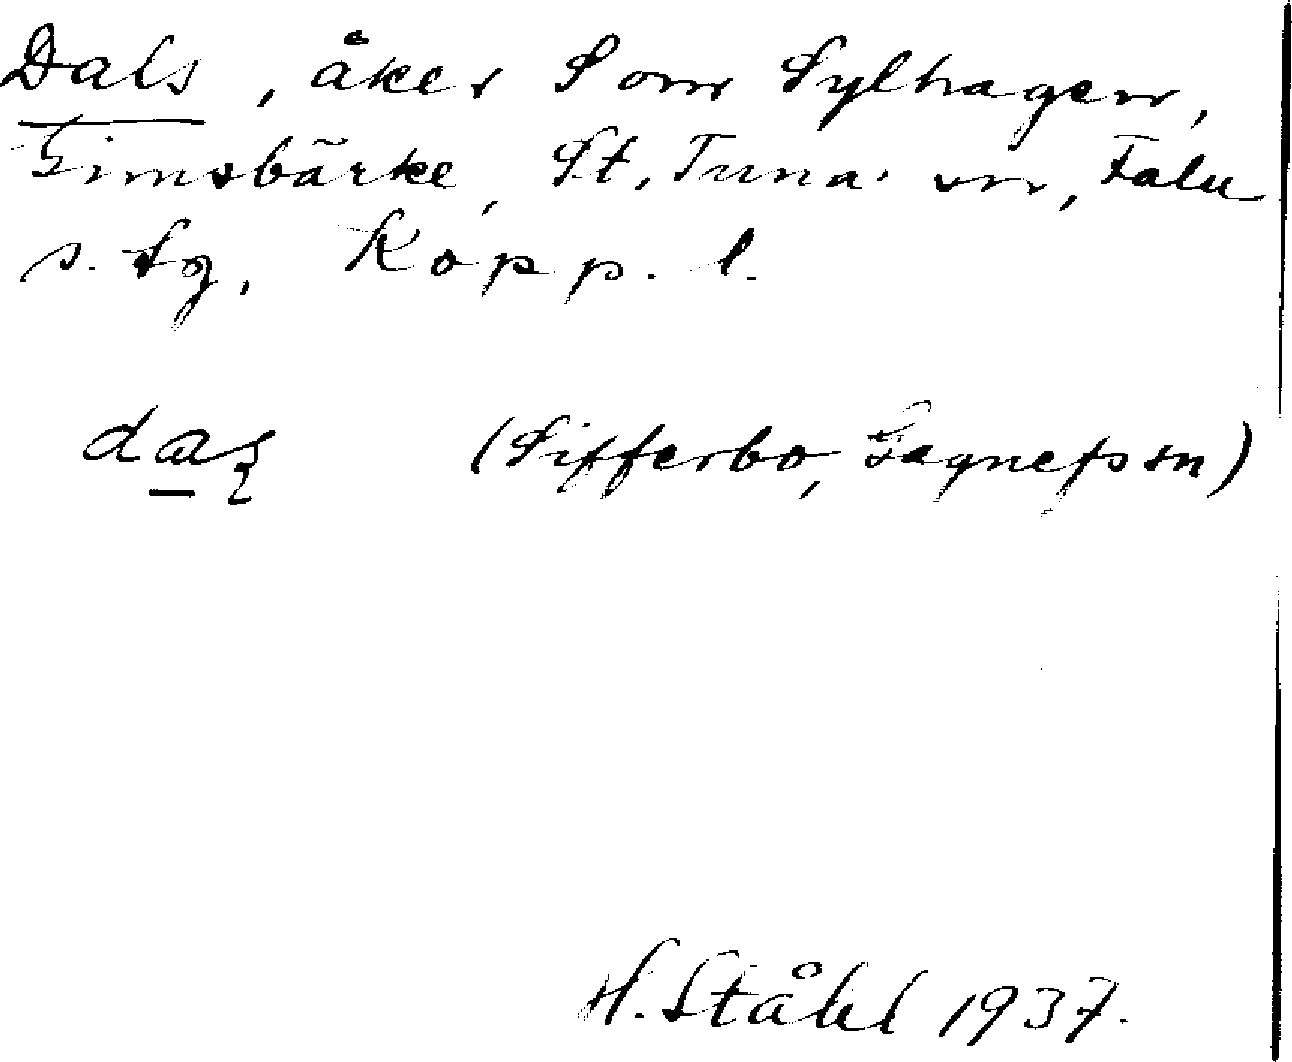 Dals, åker S om Sylhagen,
Gimsbärke, St. Tuna sn, Falu
s. tg, Kopp. l.
da̲ʒ (Sifferbo, Gagnefs sn)
H. Ståhl 1937.